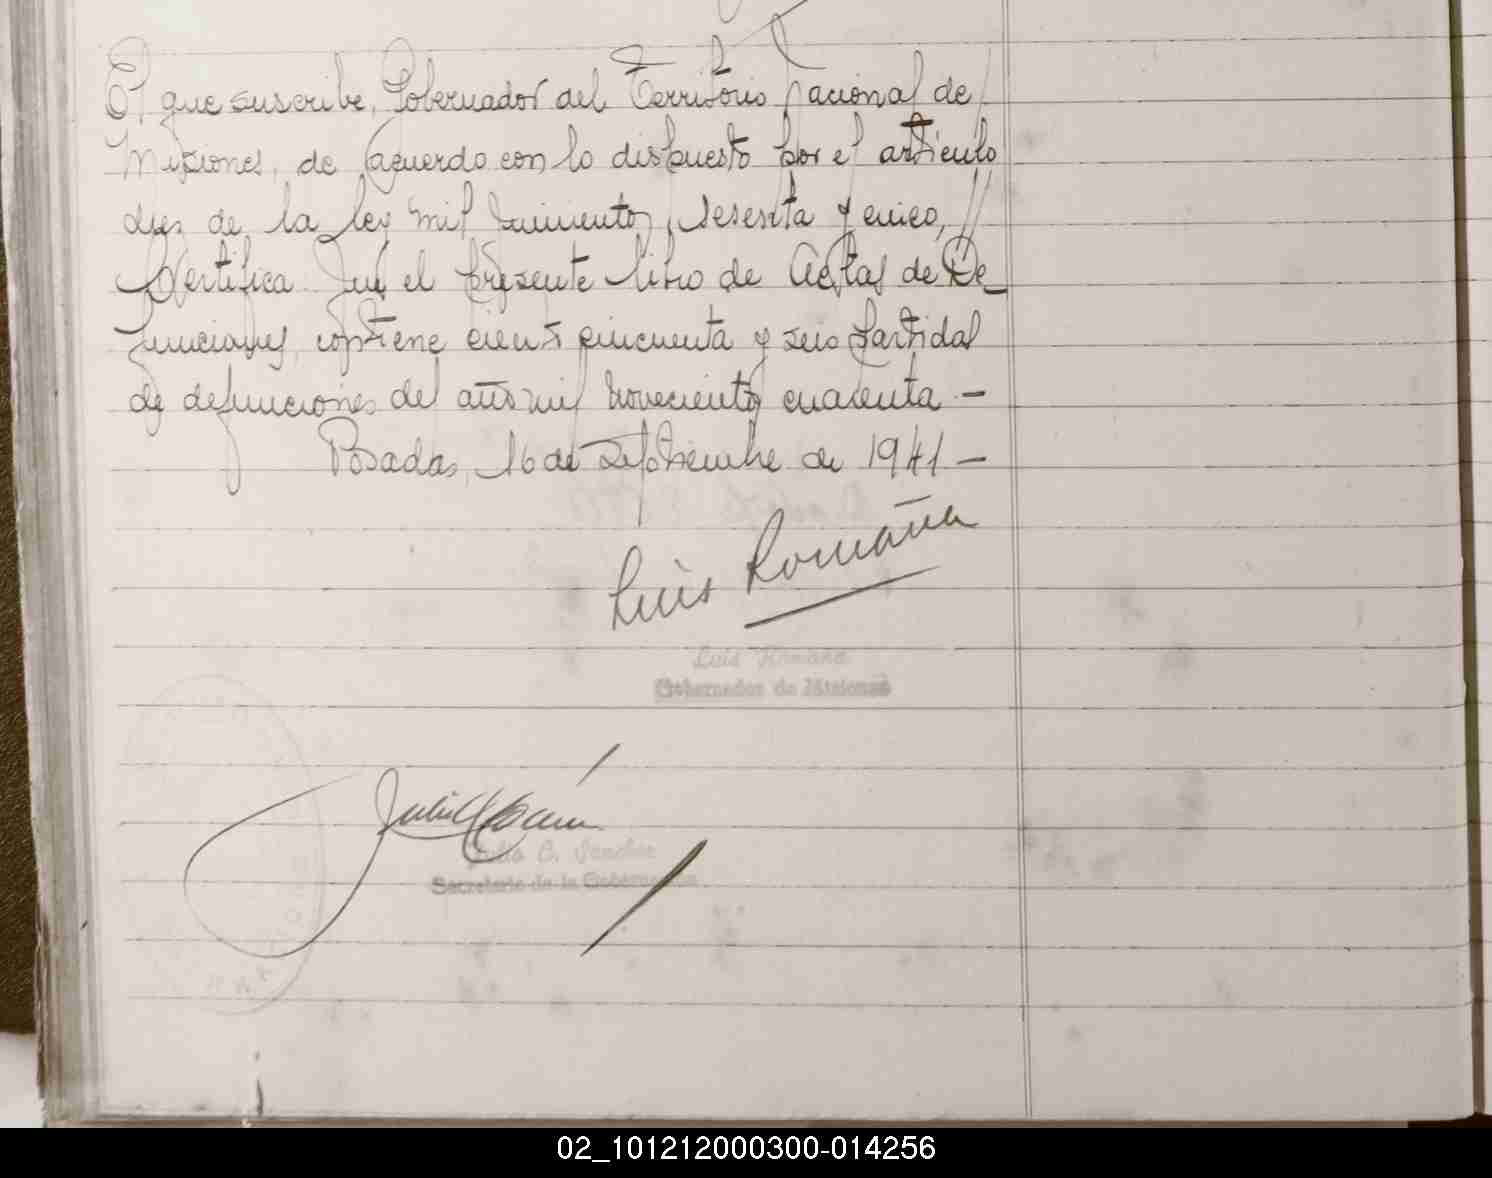 El que suscribe, Gobernador del Territorio Nacional de
Misiones, de acuerdo con lo dispuesto por el artículo
diez de la ley mil quinientos, sesenta y cinco,
Certifica: Que el presente libro de Actas de De_
funciones, contiene ciento cincuenta y seis partidas
de defunciones del año mil novecientos cuarenta -
Posadas, 16 de Septiembre de 1941 -
Luis Romaña
Luis Romaña
Gobernador de Misiones
Julio C. Sanchez
Secretario de la Gobernacion
02_101212000300-014256